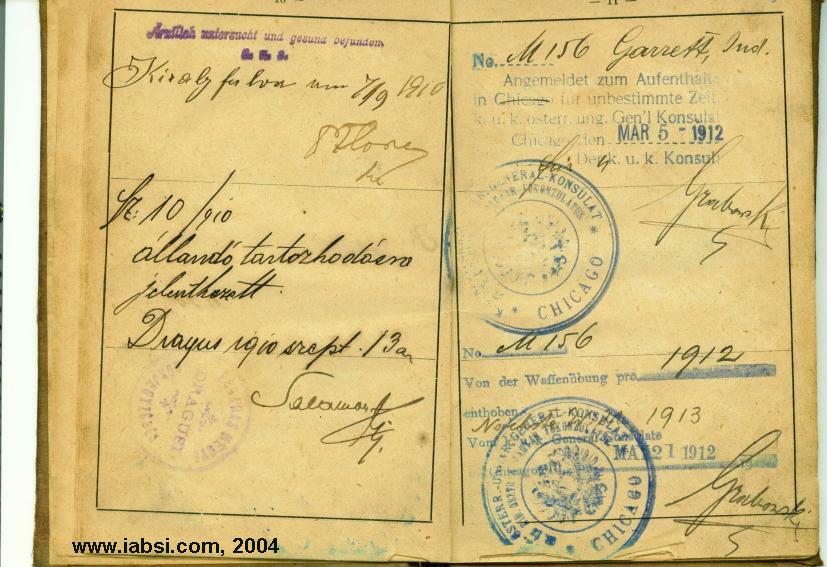 — 11 —
Ärztlich untersucht und gesund befunden
Királyfalva am 7/9 1910
Sz: 10/910
állandó tartozkodásra
jelentkezett.
Dragus 1910 szept. 13 án
Salamon
DRAGUEL
No. M 156 Garrett, Ind.
Angemeldet zum Aufenthalte
in Chicago für unbestimmte Zeit
k. u. k. österr. ung. Gen'l Konsulat
Chicago den MAR 5 - 1912
Der k. u. k. Konsul:
Grabowski
GENERAL-KONSULAT
CHICAGO
No. M 156
Von der Waffenübung pro 1912
enthoben 1913
Vom General Konsulate
MAI 21 1912
Grabowski
ÖSTERR.-UNGAR. GENERAL-KONSULAT
CHICAGO
www.iabsi.com, 2004